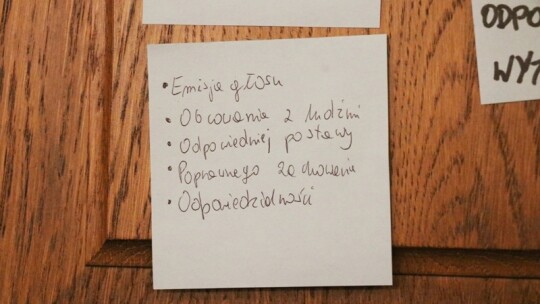 • Emisja głosu
• Obcowania z ludźmi
• Odpowiedniej postawy
• Poprawnego zachowania
• Odpowiedzialności
ODPO
WYT